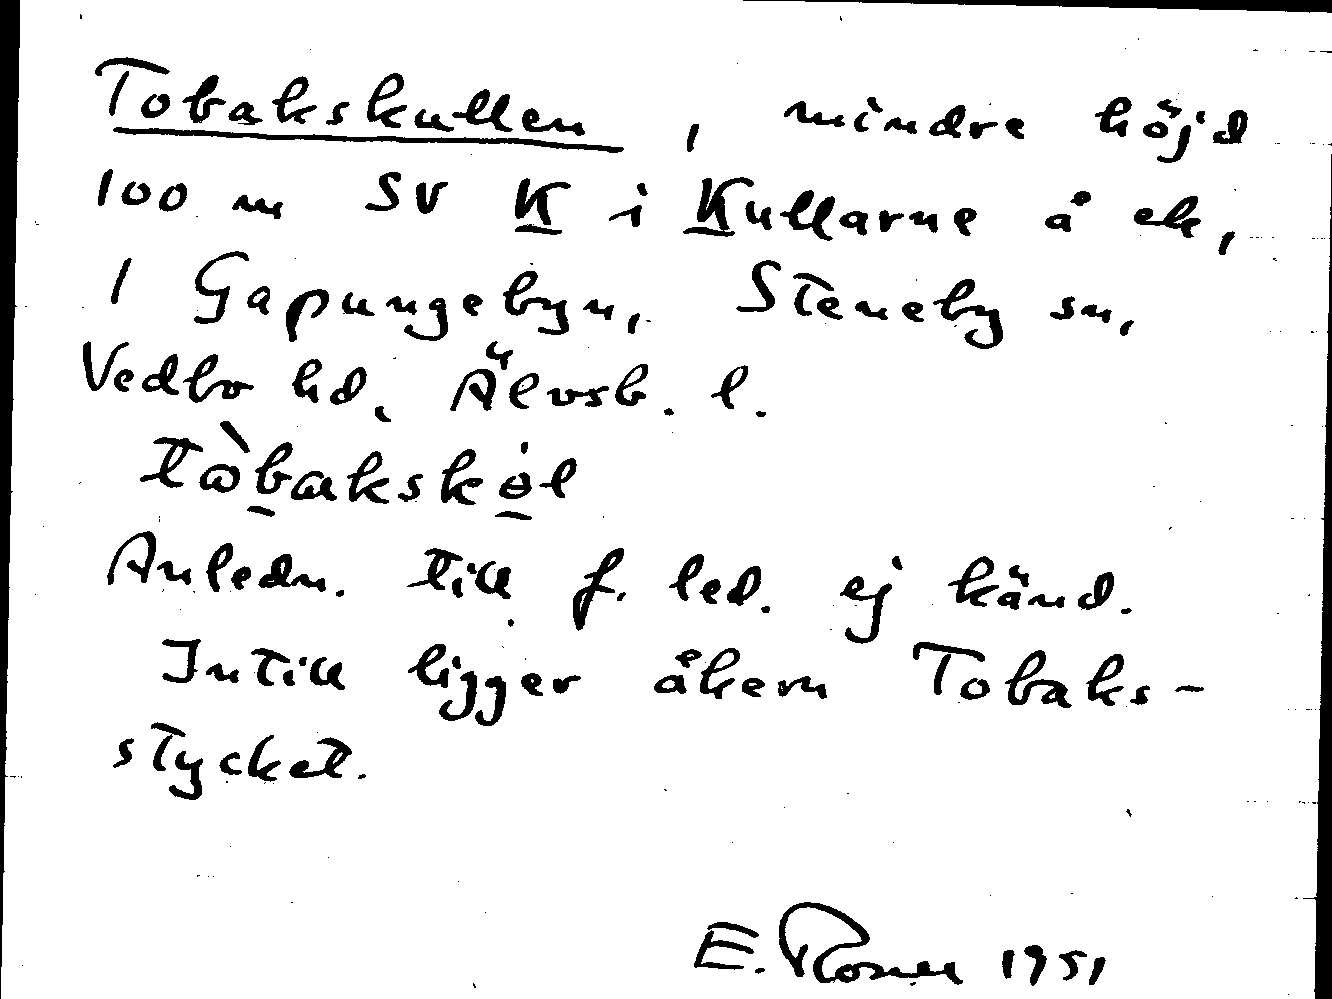 Tobakskullen, mindre höjd
100 m SV K i Kullarne å ek,
1 Gapungebyn, Steneby sn,
Vedbo hd, Älvsb. l.
tòbakskɵl
Anledn. till f. led. ej känd.
Intill ligger åkern Tobaks-
stycket.
E. Rosell 1951